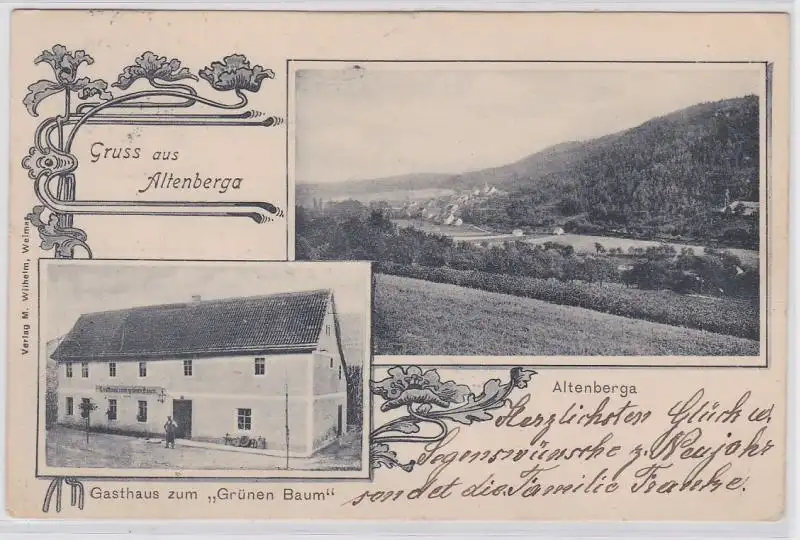 Gruss aus
Altenberga
Verlag M. Wilhelm, Weimar
Altenberga
Gasthaus zum „Grünen Baum“
Herzlichsten Glück u.
Segenswünsche z. Neujahr
sendet die Familie Franke.